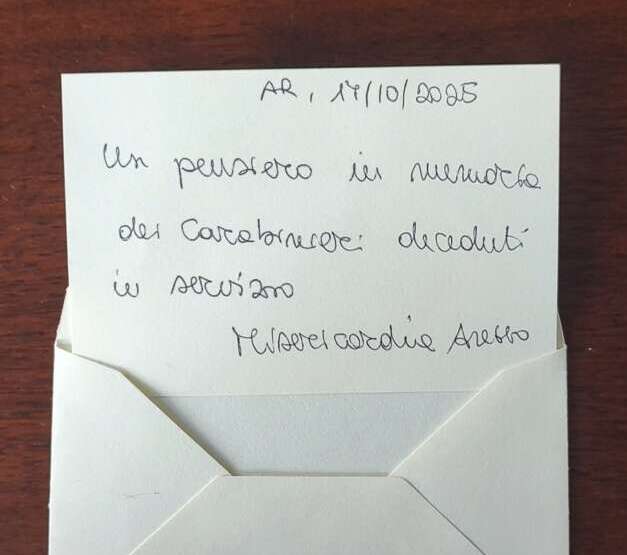 AR, 17/10/2025
Un pensiero in memoria
dei Carabinieri deceduti
in servizio
Misericordia Arezzo